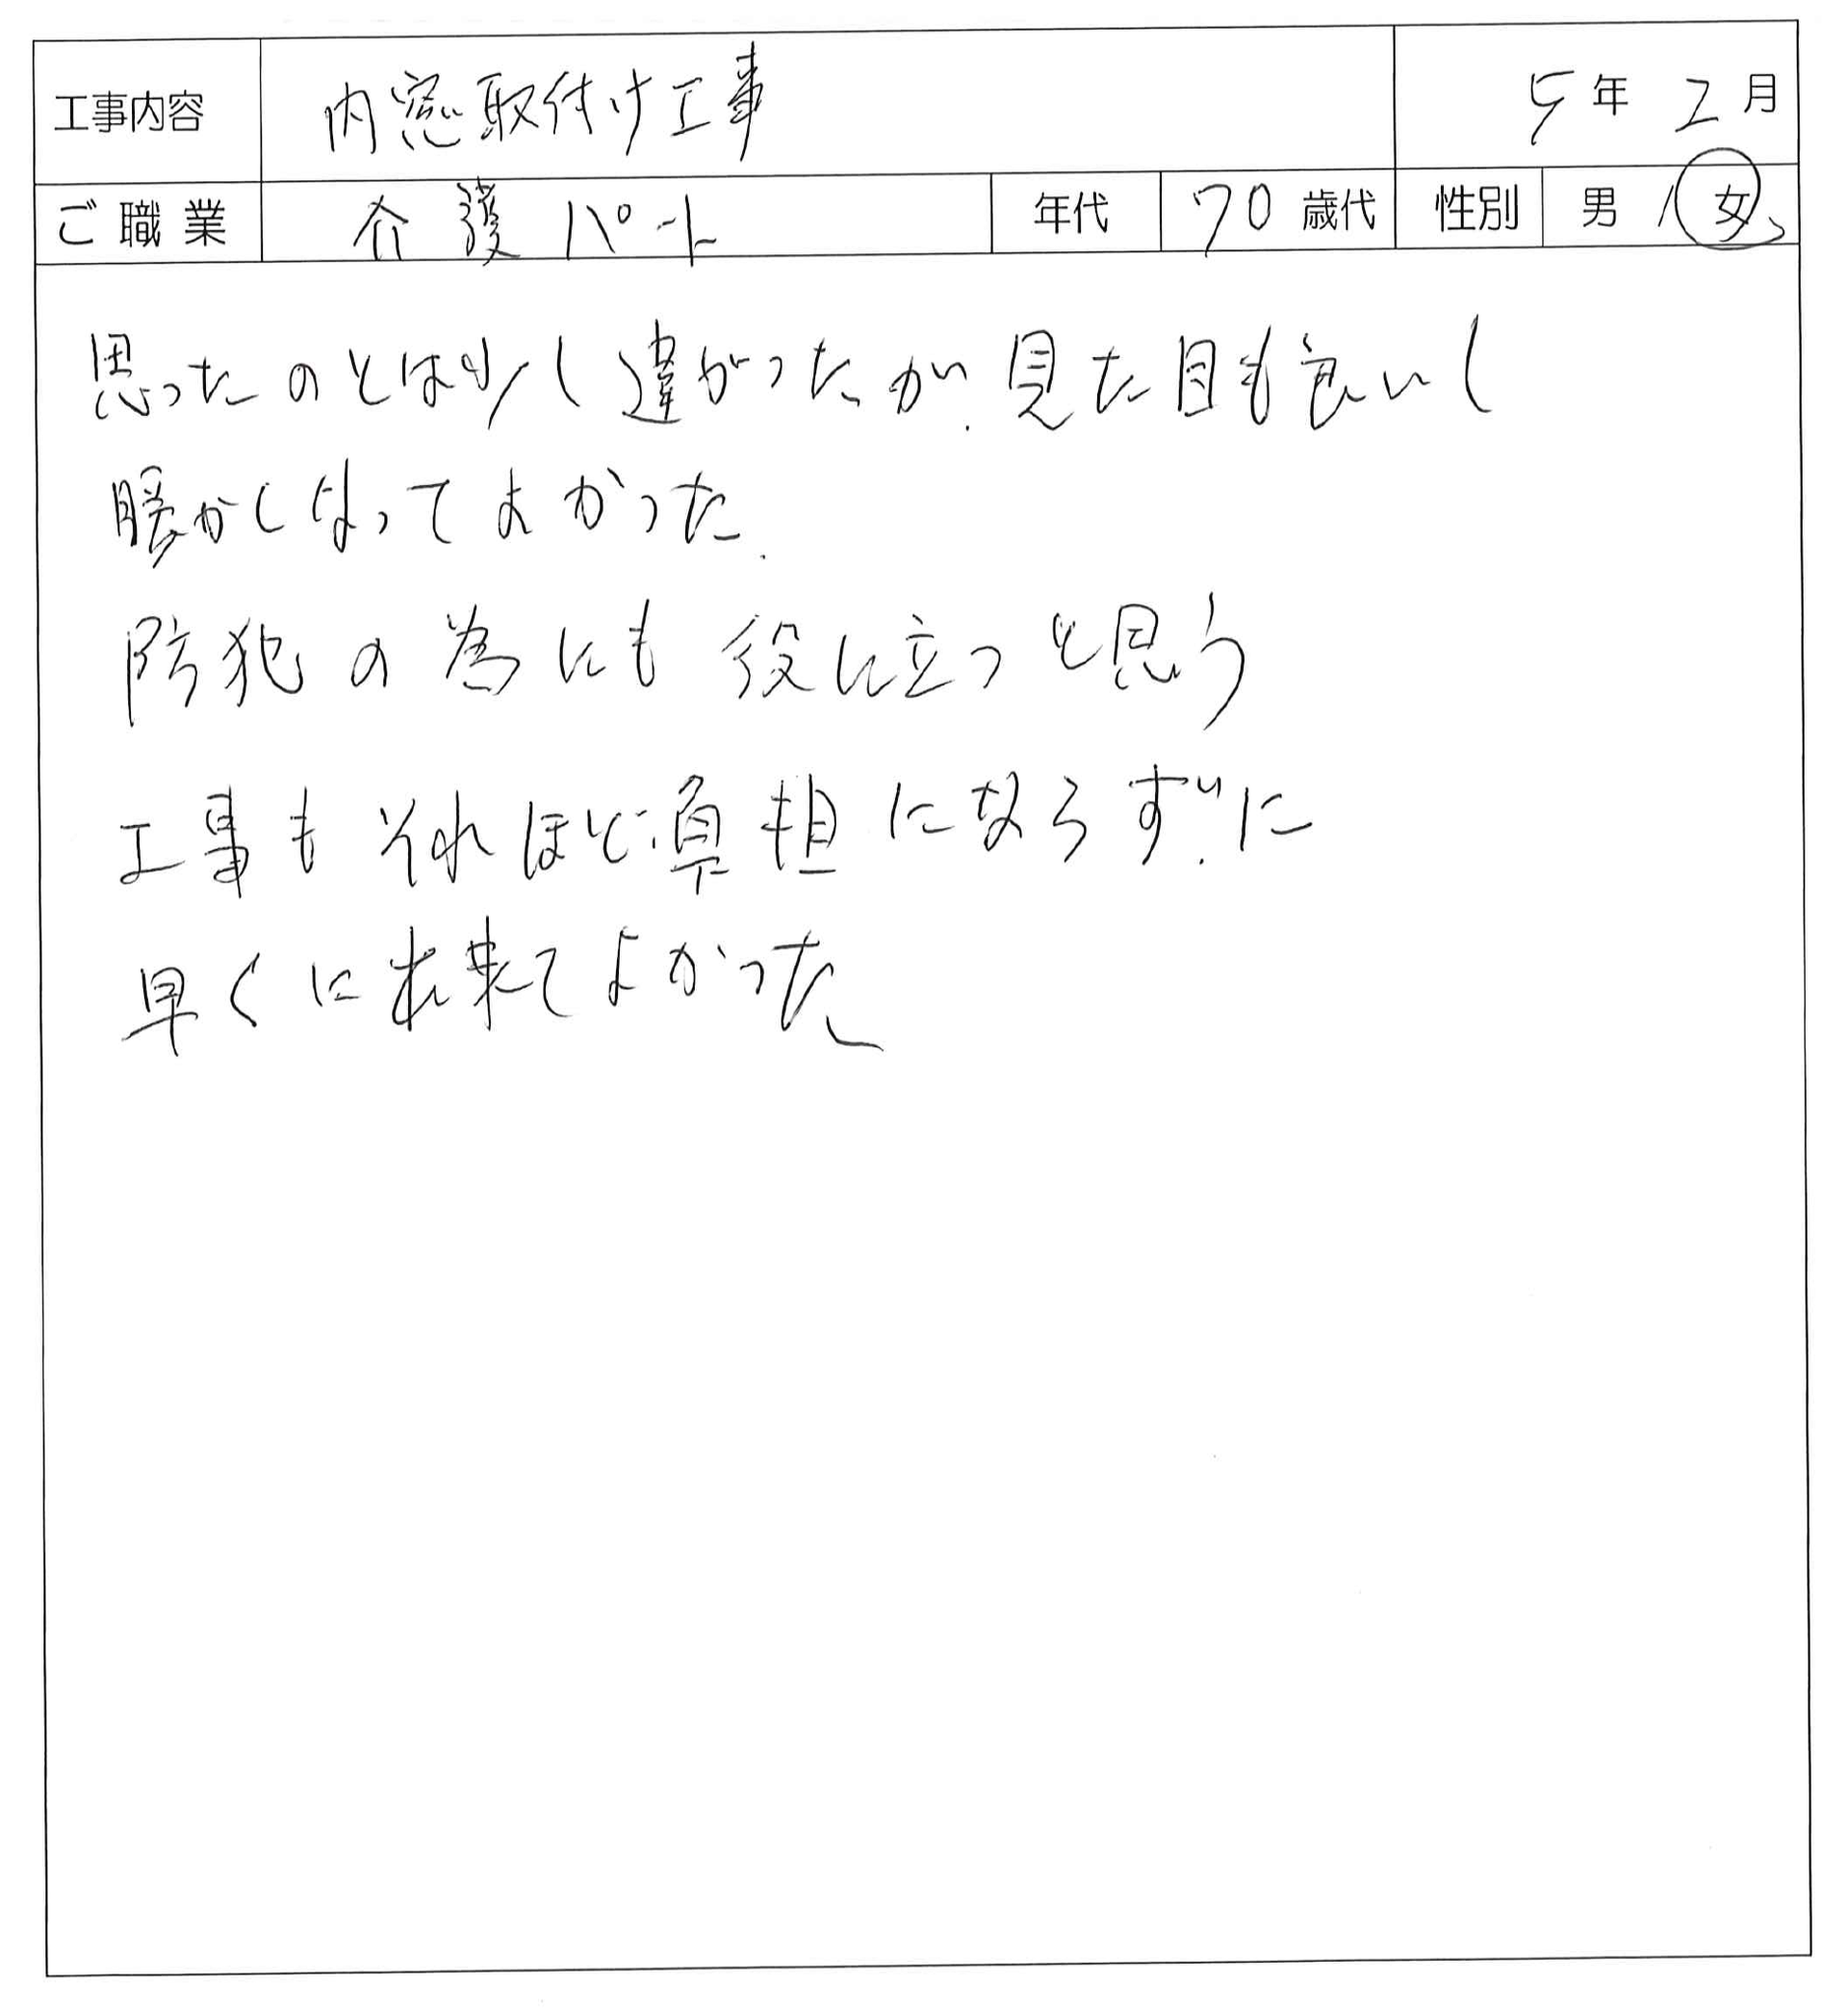 工事内容 内窓取付け工事 5年 2月
ご職業 介護パート 年代 70歳代 性別 男 / 女
思ったのとは少し違がったが、見た目も良いし
暖かくなってよかった。
防犯の為にも役に立つと思う
工事もそれほど負担にならずに
早くに出来てよかった